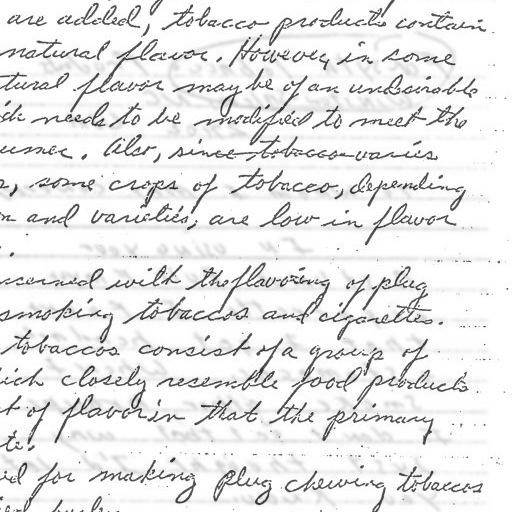 are added, tobacco products contain
natural flavor. However, in some
tural flavor may be of an undesirable
ich needs to be modified to meet the
umer. Also, since tobacco varies
, some crops of tobacco, depending
n and varieties, are low in flavor
ncerned with the flavoring of plug
smoking tobaccos and cigarettes.
tobaccos consist of a group of
hich closely resemble food products
t of flavor in that the primary
te.
ed for making plug chewing tobaccos